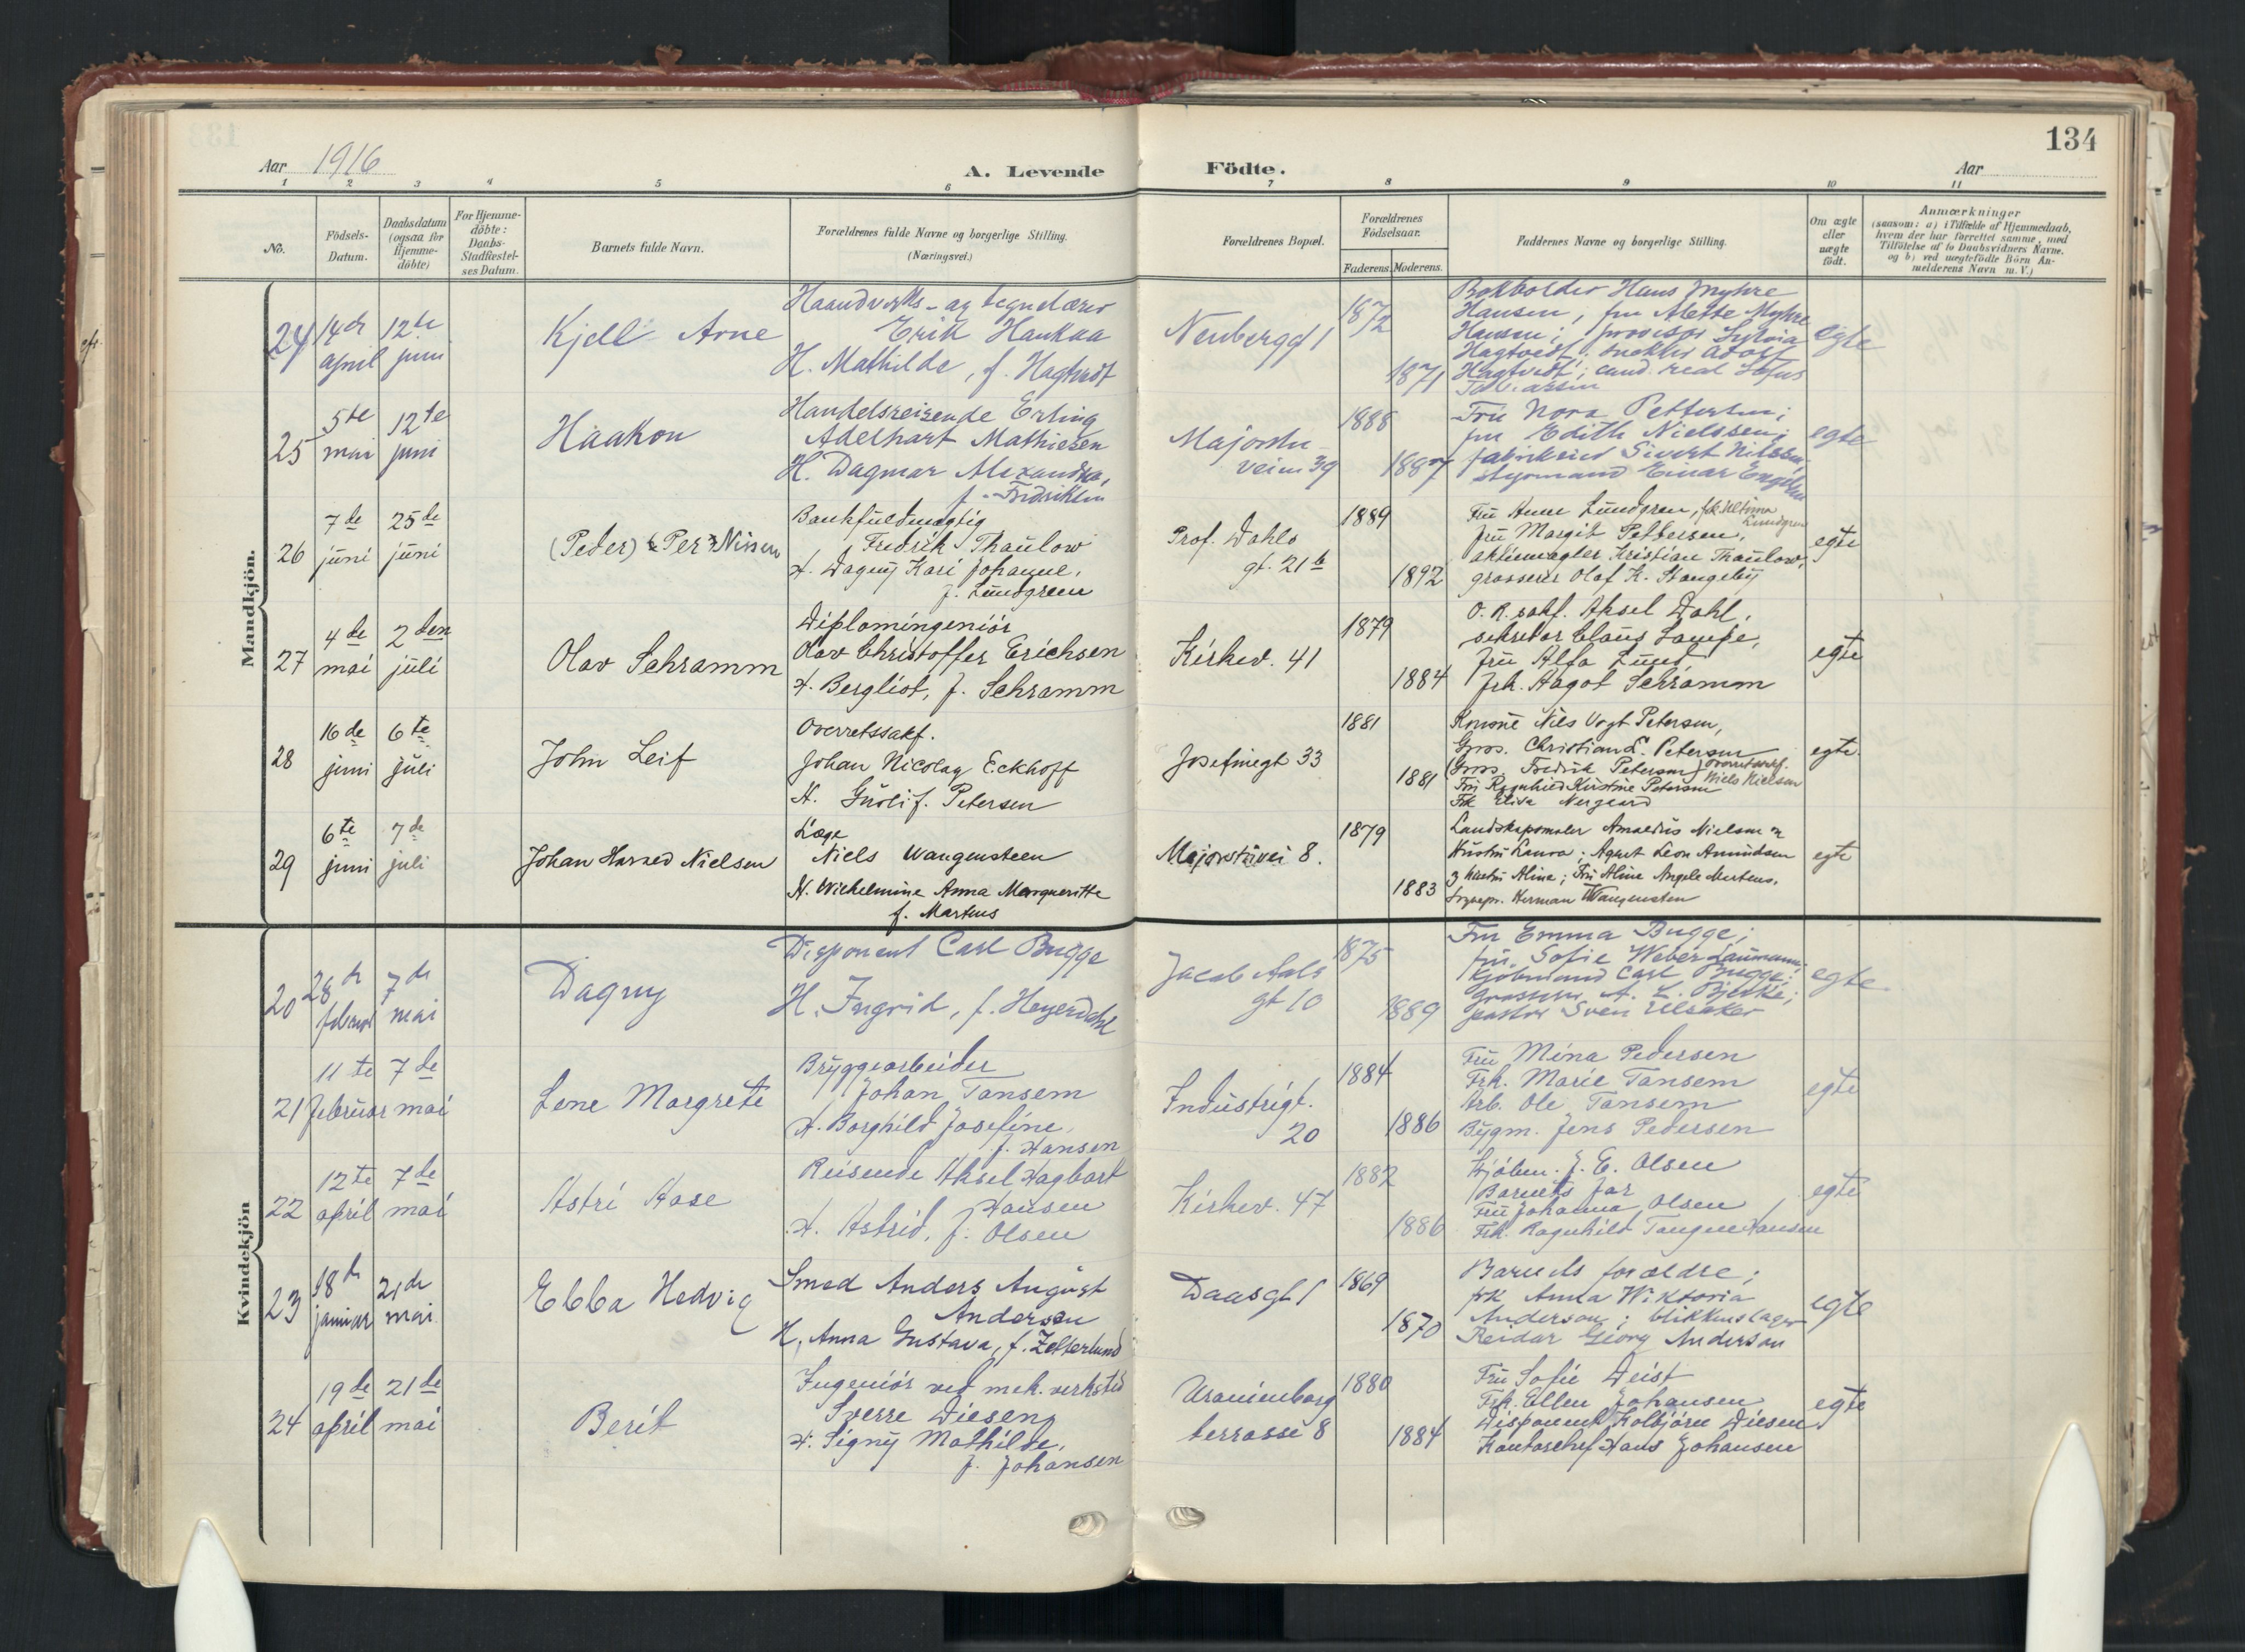 134
Aar 1916
A. Levende Födte.
Aar
1 2 3 4 5 6 7 8 9 10 11
No.
Födsels-Datum.
Daabsdatum (ogsaa for Hjemme-döbte)
For Hjemme-döbte: Daabs-Stadfæstel-ses Datum.
Barnets fulde Navn.
Forældrenes fulde Navne og borgerlige Stilling. (Næringsvei.)
Forældrenes Bopæl.
Forældrenes Födselsaar.
Faderens. Moderens.
Faddernes Navne og borgerlige Stilling.
Om ægte eller uægte födt.
Anmærkninger
(saasom: a) i Tilfælde af Hjemmedaab,
hvem der har forrettet samme, med
Tilföielse af to Daabsvidners Navne,
og b) ved uægtefödte Börn An-
melderens Navn m. V.)
Mandkjön.
24 14de april 12te juni
Kjell Arne
Haandverks- og tegnelærer
Erik Haukaa
H. Mathilde, f. Hagtvedt
Neuberggt 1
1872
1871
Bokholder Hans Myhre
Hansen, fru Alette Myhre
Hansen; provisor Sylvia
Hagtvedt; Adolf
Hagtvedt; cand. real
egte
25 5te mai 12te juni
Haakon
Handelsreisende Erling
Adelhart Mathiesen
H. Dagmar Alexandra,
f. Fredriksen
Majorstu-
veien 39
1888
1887
Fru Nora Pettersen;
fru Edith Nielssen;
fabrikeier Sivert Nilssen,
styrmand Einar
egte
26 7de juni 25de juni
(Peder) Per Nissen
Bankfuldmægtig
Fredrik Thaulow
H. Dagny Kari Johanne,
f. Lundgreen
Prof. Dahls
gt. 21 b
1889
1892
Fru Anne Lundgren, frk. Lundgren
Fru Margit Pettersen,
aktiemægler Kristian Thaulow,
grosserer Olaf K. Stangeby
egte
27 4de mai 2den juli
Olav Schramm
Diplomingeniör
Olav Christoffer Erichsen
H. Bergliot, f. Schramm
Kirkev. 41
1879
1884
O.R.sakf. Aksel Dahl,
sekretær Claus Lampe,
Fru Alfa Lund,
Frk. Aagot Schramm
egte
28 16de juni 6te juli
John Leif
Overretssakf.
Johan Nicolay Eckhoff
H. Guroli f. Petersen
Josefinegt 33
1881
1881
Niels Vogt Petersen,
Gros. Christian L. Petersen
Gros. Fredrik Petersen, Overretssakf. Niels Nielsen
Fru Ragnhild Kirstine Petersen
Frk Elise Nergaard
egte.
29 6te juni 7de juli
Johan Harned Nielsen
Læge
Niels Wangensteen
H. Wilhelmine Anna Margueritte
f. Martens
Majorstuvei 8.
1879
1883
Landskapsmaler Amaldus Nielsen og
Hustru Laura; Agent Leon Amundsen
og hustru Aline; Fru Aline Angele Mertens,
Herman Wangensten
egte
Kvindekjön
20 28de februar 7de mai
Dagny
Disponent Carl Bugge
H. Ingrid, f. Heyerdahl
Jacob Aals
gt 10
1875
1889
Fru Emma Bugge;
fru Sofie Weber Laumann;
Kjöbmand Carl Bugge;
grosserer A. L. Bjerke;
pastor Sven Elsaker
egte
21 11te februar 7de mai
Lene Margrete
Bryggearbeider
Johan Tansem
H. Borghild Josefine,
f. Hansen
Industrigt.
20
1884
1886
Fru Mina Pedersen
Frk. Marie Tansem
Arb. Ole Tansem
Bygm. Jens Pedersen
egte
22 12te april 7de mai
Astri Aase
Reisende Aksel Hagbart
Hansen
H. Astrid, f. Olsen
Kirkev. 47
1882
1886
Kjöbm. J. E. Olsen
Barnets far
Fru Johanna Olsen
Frk. Ragnhild Tangen Hansen
egte
23 18de januar 21de mai
Ebba Hedvig
Smed Anders August
Anderson
H. Anna Gustava, f. Zetterlund
Daasgt 1
1869
1870
Barnets forældre;
frk Anna Wiktoria
Anderson; blikkenslager
Reidar Georg Anderson
egte
24 19de april 21de mai
Berit
Ingeniör ved mek. verksted
Sverre Diesen
H. Signy Mathilde,
f. Johansen
Uranienborg
terrasse 8
1880
1884
Fru Sofie Deist
Frk. Ellen Johansen
Disponent Kolbjörn Diesen
Kontorchef Hans Johansen
egte